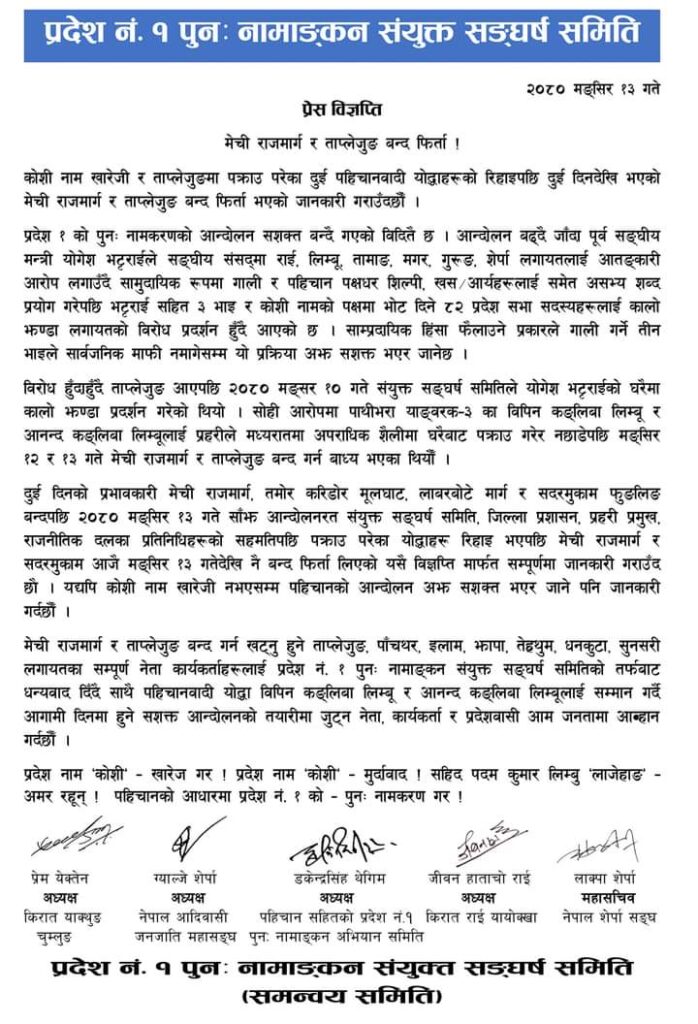 प्रदेश नं. १ पुनः नामाङ्कन संयुक्त सङ्घर्ष समिति
२०८० मङ्सिर १३ गते
प्रेस विज्ञप्ति
मेची राजमार्ग र ताप्लेजुङ बन्द फिर्ता !
कोशी नाम खारेजी र ताप्लेजुङमा पक्राउ परेका दुई पहिचानवादी योद्धाहरूको रिहाइपछि दुई दिनदेखि भएको
मेची राजमार्ग र ताप्लेजुङ बन्द फिर्ता भएको जानकारी गराउँदछौँ ।
प्रदेश १ को पुनः नामकरणको आन्दोलन सशक्त बन्दै गएको विदितै छ । आन्दोलन बढ्दै जाँदा पूर्व सङ्घीय
मन्त्री योगेश भट्टराईले सङ्घीय संसद्मा राई, लिम्बू, तामाङ, मगर, गुरूङ, शेर्पा लगायतलाई आतङ्कारी
आरोप लगाउँदै सामुदायिक रूपमा गाली र पहिचान पक्षधर शिल्पी, खस/आर्यहरूलाई समेत असभ्य शब्द
प्रयोग गरेपछि भट्टराई सहित ३ भाइ र कोशी नामको पक्षमा भोट दिने ८२ प्रदेश सभा सदस्यहरूलाई कालो
झण्डा लगायतको विरोध प्रदर्शन हुँदै आएको छ । साम्प्रदायिक हिंसा फैलाउने प्रकारले गाली गर्ने तीन
भाइले सार्वजनिक माफी नमागेसम्म यो प्रक्रिया अझ सशक्त भएर जानेछ ।
विरोध हुँदाहुँदै ताप्लेजुङ आएपछि २०८० मङ्सर १० गते संयुक्त सङ्घर्ष समितिले योगेश भट्टराईको घरैमा
कालो झण्डा प्रदर्शन गरेको थियो । सोही आरोपमा पाथीभरा याङ्वरक-३ का विपिन कङ्लिबा लिम्बू र
आनन्द कङ्लिबा लिम्बूलाई प्रहरीले मध्यरातमा अपराधिक शैलीमा घरैबाट पक्राउ गरेर नछाडेपछि मङ्सिर
१२ र १३ गते मेची राजमार्ग र ताप्लेजुङ बन्द गर्न बाध्य भएका थियौँ ।
दुई दिनको प्रभावकारी मेची राजमार्ग, तमोर करिडोर मूलघाट, लाबरबोटे मार्ग र सदरमुकाम फुङलिङ
बन्दपछि २०८० मङ्सिर १३ गते साँझ आन्दोलनरत संयुक्त सङ्घर्ष समिति, जिल्ला प्रशासन, प्रहरी प्रमुख,
राजनीतिक दलका प्रतिनिधिहरूको सहमतिपछि पक्राउ परेका योद्धाहरू रिहाइ भएपछि मेची राजमार्ग र
सदरमुकाम आजै मङ्सिर १३ गतेदेखि नै बन्द फिर्ता लिएको यसै विज्ञप्ति मार्फत सम्पूर्णमा जानकारी गराउँद
छौ । यद्यपि कोशी नाम खारेजी नभएसम्म पहिचानको आन्दोलन अझ सशक्त भएर जाने पनि जानकारी
गर्दछौँ ।
मेची राजमार्ग र ताप्लेजुङ बन्द गर्न खट्नु हुने ताप्लेजुङ, पाँचथर, इलाम, झापा, तेह्रथुम, धनकुटा, सुनसरी
लगायतका सम्पूर्ण नेता कार्यकर्ताहरूलाई प्रदेश नं. १ पुनः नामाङ्कन संयुक्त सङ्घर्ष समितिको तर्फबाट
धन्यवाद दिँदै साथै पहिचानवादी योद्धा विपिन कङ्लिबा लिम्बू र आनन्द कङ्लिबा लिम्बूलाई सम्मान गर्दै
आगामी दिनमा हुने सशक्त आन्दोलनको तयारीमा जुट्न नेता, कार्यकर्ता र प्रदेशवासी आम जनतामा आब्हान
गर्दछौँ ।
प्रदेश नाम 'कोशी' - खारेज गर ! प्रदेश नाम 'कोशी' - मुर्दावाद ! सहिद पदम कुमार लिम्बु 'लाजेहाङ' -
अमर रहून् ! पहिचानको आधारमा प्रदेश नं. १ को - पुनः नामकरण गर !
प्रेम येक्तेन ग्याल्जे शेर्पा डकेन्द्रसिंह थेगिम जीवन हाताचो राई लाक्पा शेर्पा
अध्यक्ष अध्यक्ष अध्यक्ष अध्यक्ष महासचिव
किरात याक्थुङ नेपाल आदिवासी पहिचान सहितको प्रदेश नं.१ किरात राई यायोक्खा नेपाल शेर्पा सङ्घ
चुम्लुङ जनजाति महासङ्घ पुनः नामाङ्कन अभियान समिति
प्रदेश नं. १ पुनः नामाङ्कन संयुक्त सङ्घर्ष समिति
(समन्वय समिति)